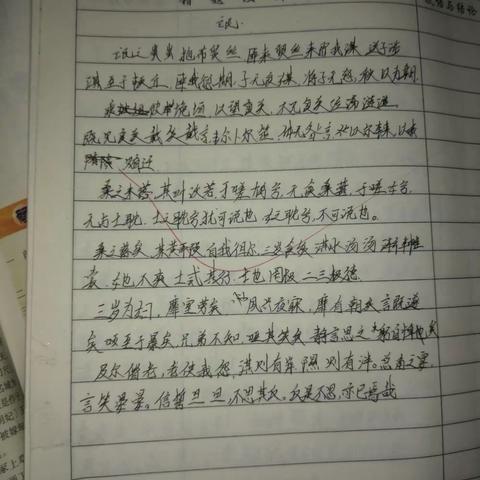 氓
氓之蚩蚩 抱布贸丝 匪来贸丝 来即我谋 送子涉
淇 至于顿丘 匪我愆期 子无良媒 将子无怒 秋以为期
乘彼垝垣 以望复关 不见复关 泣涕涟涟
既见复关 载笑载言 尔卜尔筮 体无咎言 以尔车来 以我
贿迁
桑之未落 其叶沃若 于嗟鸠兮 无食桑葚 于嗟女兮
无与士耽 士之耽兮 犹可说也 女之耽兮 不可说也
桑之落矣 其黄而陨 自我徂尔 三岁食贫 淇水汤汤
裳 女也不爽 士贰其行 士也罔极 二三其德
三岁为妇 靡室劳矣 夙兴夜寐 靡有朝矣 言既遂
矣 至于暴矣 兄弟不知 咥其笑矣 静言思之 躬自悼矣
及尔偕老 老使我怨 淇则有岸 隰则有泮 总角之宴
言笑晏晏 信誓旦旦 不思其反 反是不思 亦已焉哉